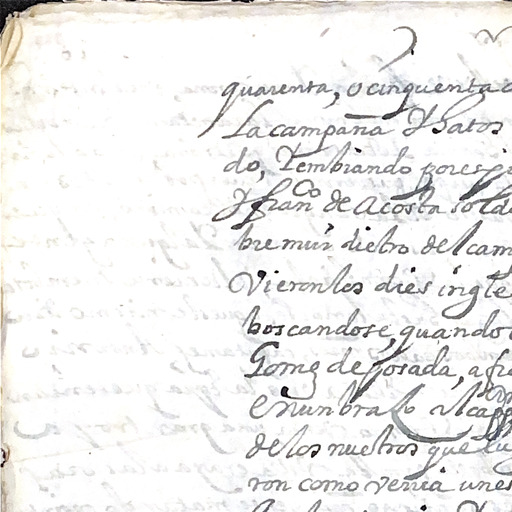 quarenta, o cinquenta
La campaña Y hatos
do, Y embiando por espi
Y fran.co de Acosta solda
bre muy dietro del cam
Vieron los dies ingle
boscandose, quando
Gomez de posada, a fra
en un braso al cap
de los nuestros que
ron como venia unes